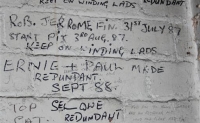 KEEP ON WINDING LADS REDUNDANT
ROB. JEROME, FIN. 31ST JULY 87
START PIT 3RD AUG. 87.
KEEP ON WINDING LADS.
ERNIE + PAUL MADE
REDUNDANT.
SEPT 88.
TOP SEL ONE
REDUNDANT